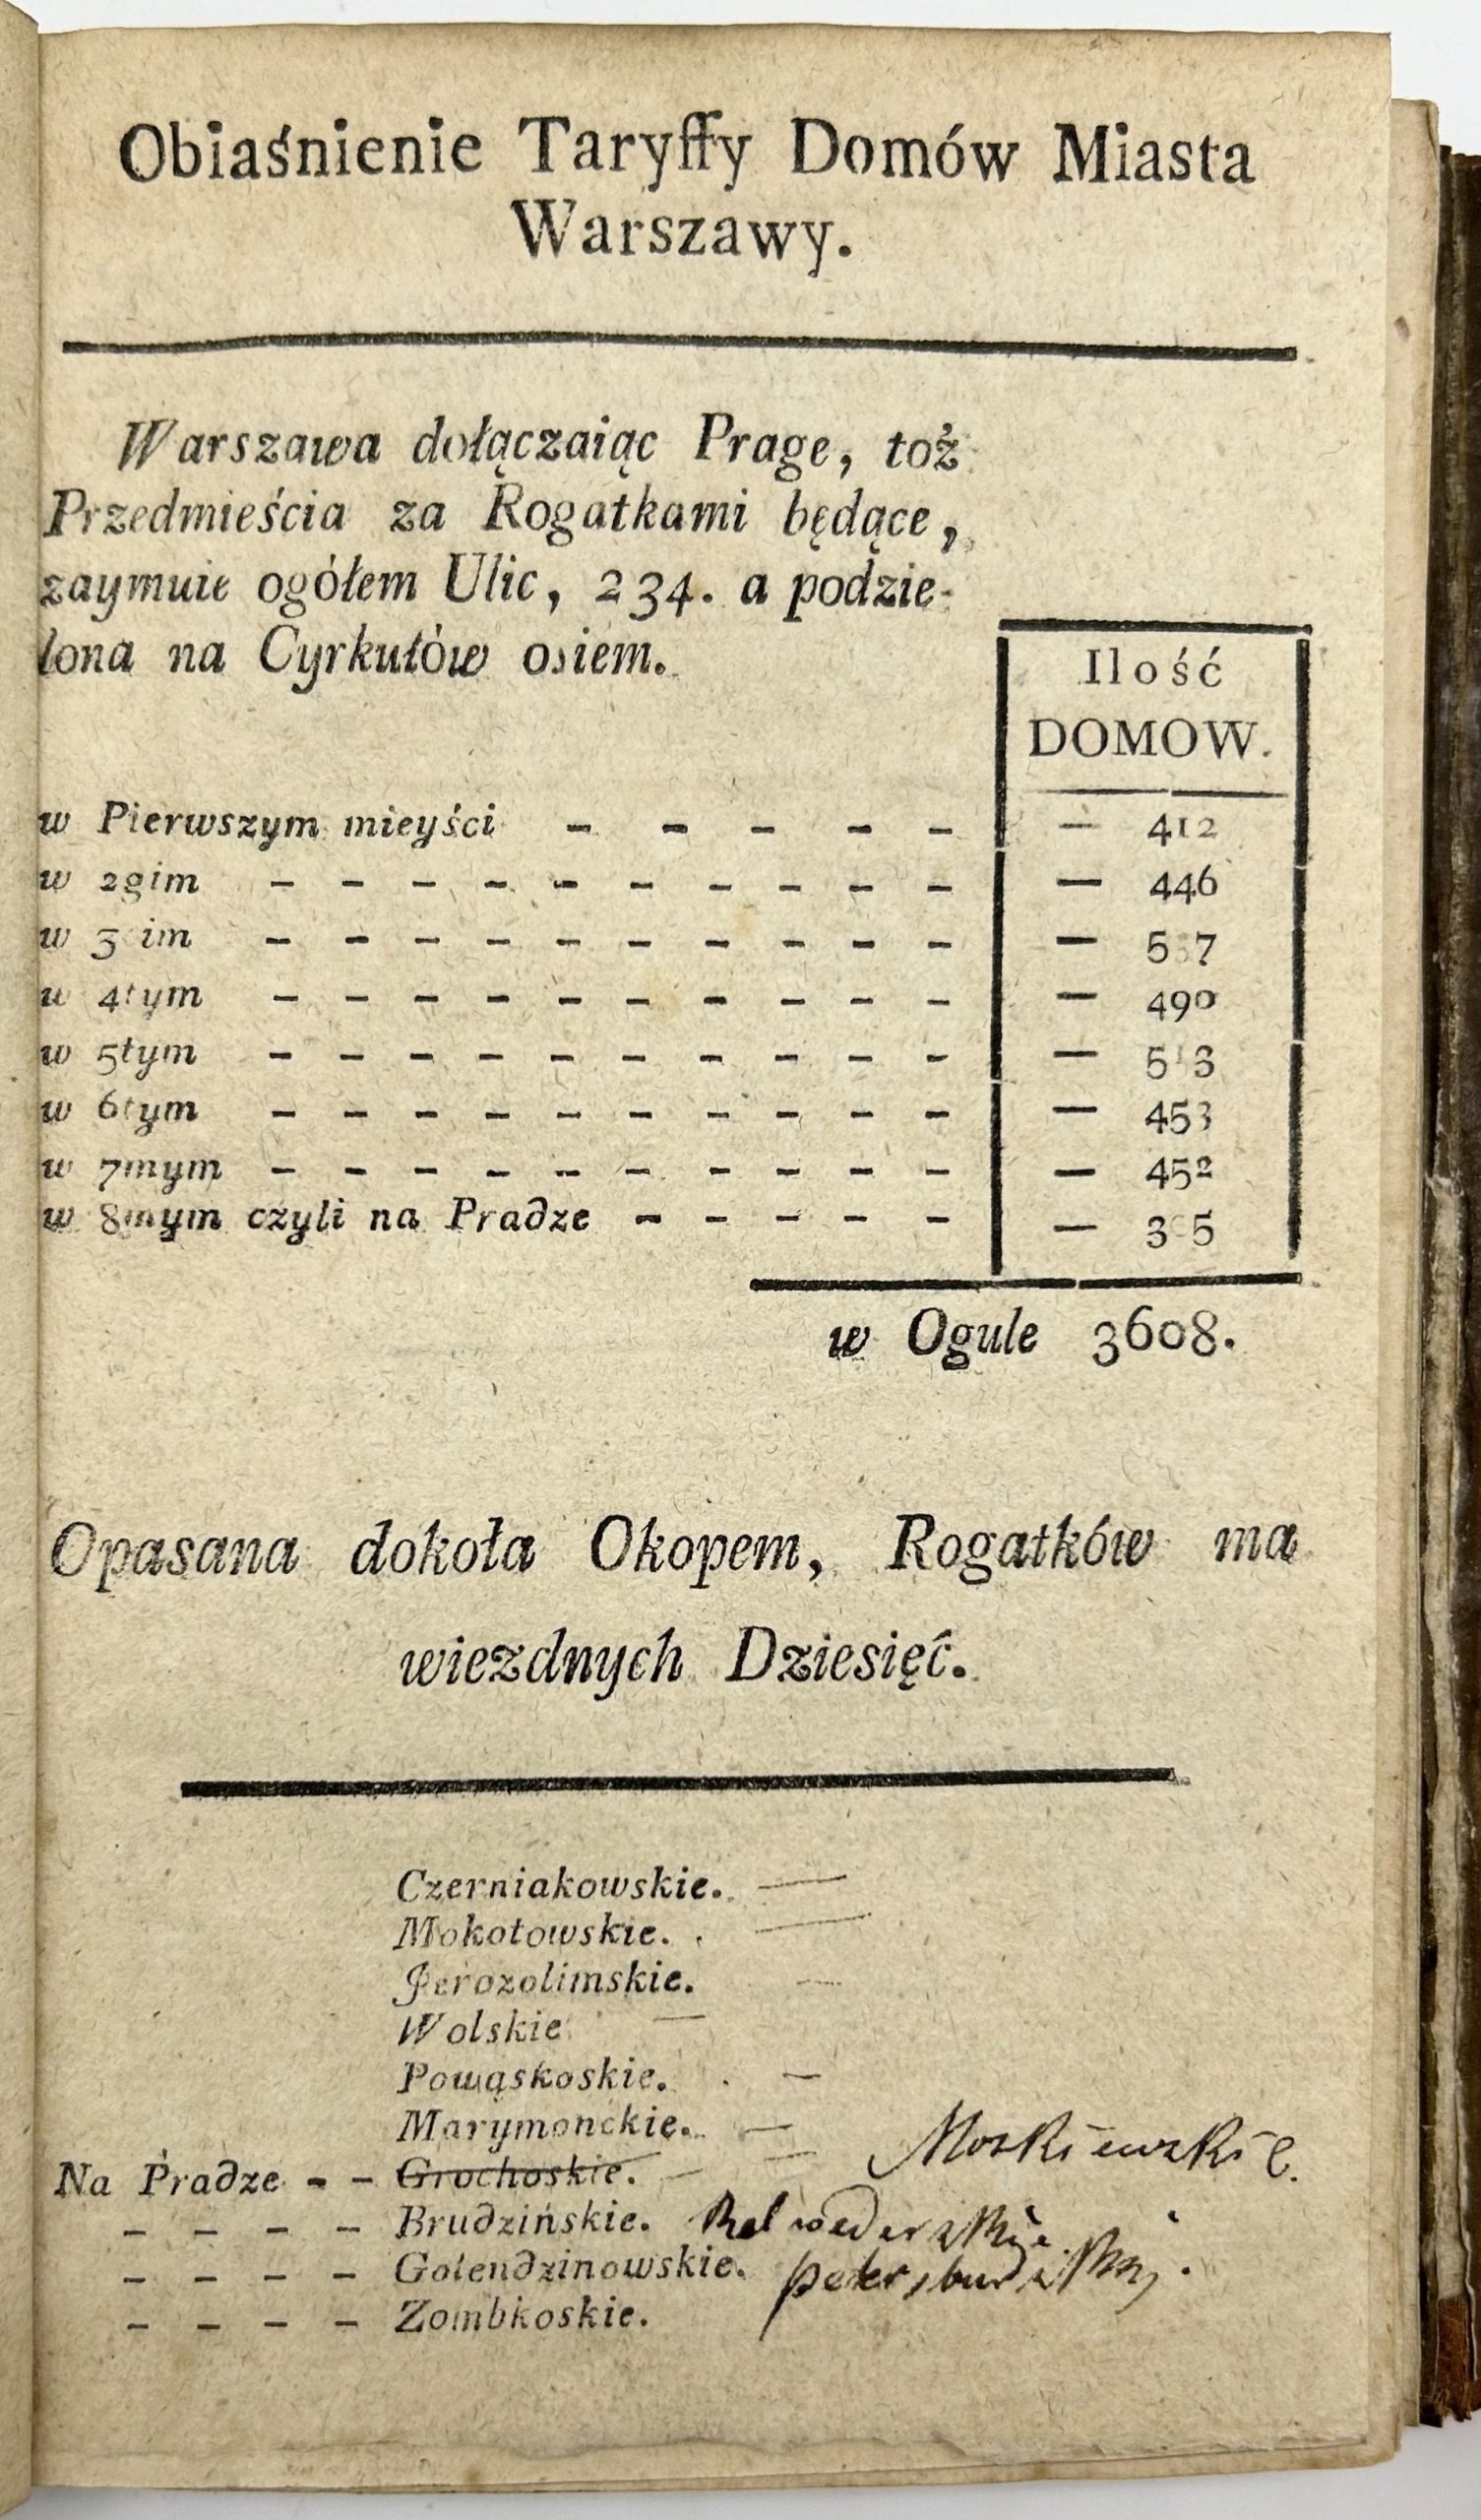 Obiaśnienie Taryffy Domów Miasta
Warszawy.
Warszawa dołączaiąc Prage, toż
Przedmieścia za Rogatkami będące,
zaymuie ogółem Ulic, 234. a podzie-
lona na Cyrkułów osiem.
Ilość
DOMOW.
w Pierwszym mieyści - - - - - — 412
w 2gim - - - - - - - - - - — 446
w 3cim - - - - - - - - - - — 537
w 4tym - - - - - - - - - - — 490
w 5tym - - - - - - - - - - — 513
w 6tym - - - - - - - - - - — 453
w 7mym - - - - - - - - - - — 452
w 8mym czyli na Pradze - - - - - — 305
w Ogule 3608.
Opasana dokoła Okopem, Rogatków ma
wiezdnych Dziesięć.
Czerniakowskie. —
Mokotowskie. —
Jerozolimskie. —
Wolskie —
Powąskoskie. —
Marymonckie. —
Na Pradze - - Grochoskie. — Moskiewskie.
- - - - Brudzińskie. Belwederskie.
- - - - Golendzinowskie.
- - - - Zombkoskie.